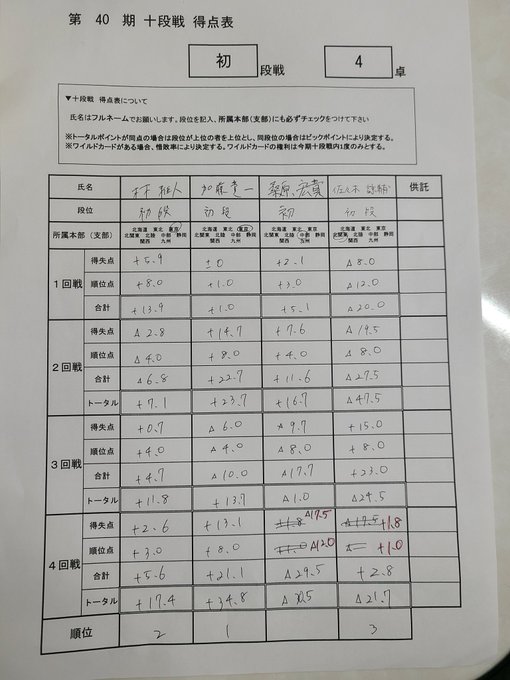 第 40 期 十段戦 得点表
初 段戦 4 卓
▼十段戦 得点表について
氏名はフルネームでお願いします。段位を記入、所属本部(支部)にも必ずチェックをつけて下さい
※トータルポイントが同点の場合は段位が上位の者を上位とし、同段位の場合はビックポイントにより決定する。
※ワイルドカードがある場合、惜敗率により決定する。ワイルドカードの権利は今期十段戦内1度のみとする。
氏名 加藤 一 桑原 宏貴 佐々木 詠輔 供託
段位 初段 初段 初 初段
所属本部(支部) 北海道 東北 東京 北海道 東北 東京 北海道 東北 東京 北海道 東北 東京
北関東 北陸 中部 静岡 北関東 北陸 中部 静岡 北関東 北陸 中部 静岡 北関東 北陸 中部 静岡
関西 九州 関西 九州 関西 九州 関西 九州
1回戦
得失点 +5.9 ±0 +2.1 △8.0
順位点 +8.0 +1.0 +3.0 △12.0
合計 +13.9 +1.0 +5.1 △20.0
2回戦
得失点 △2.8 +14.7 +7.6 △19.5
順位点 △4.0 +8.0 +4.0 △8.0
合計 △6.8 +22.7 +11.6 △27.5
トータル +7.1 +23.7 +16.7 △47.5
3回戦
得失点 +0.7 △6.0 △9.7 +15.0
順位点 +4.0 △4.0 △8.0 +8.0
合計 +4.7 △10.0 △17.7 +23.0
トータル +11.8 +13.7 △1.0 △24.5
4回戦
得失点 +2.6 +13.1 +1.8 △17.5 △17.5 +1.8
順位点 +3.0 +8.0 +1.0 △12.0 +1.0
合計 +5.6 +21.1 △29.5 +2.8
トータル +17.4 +34.8 △30.5 △21.7
順位 2 1 3